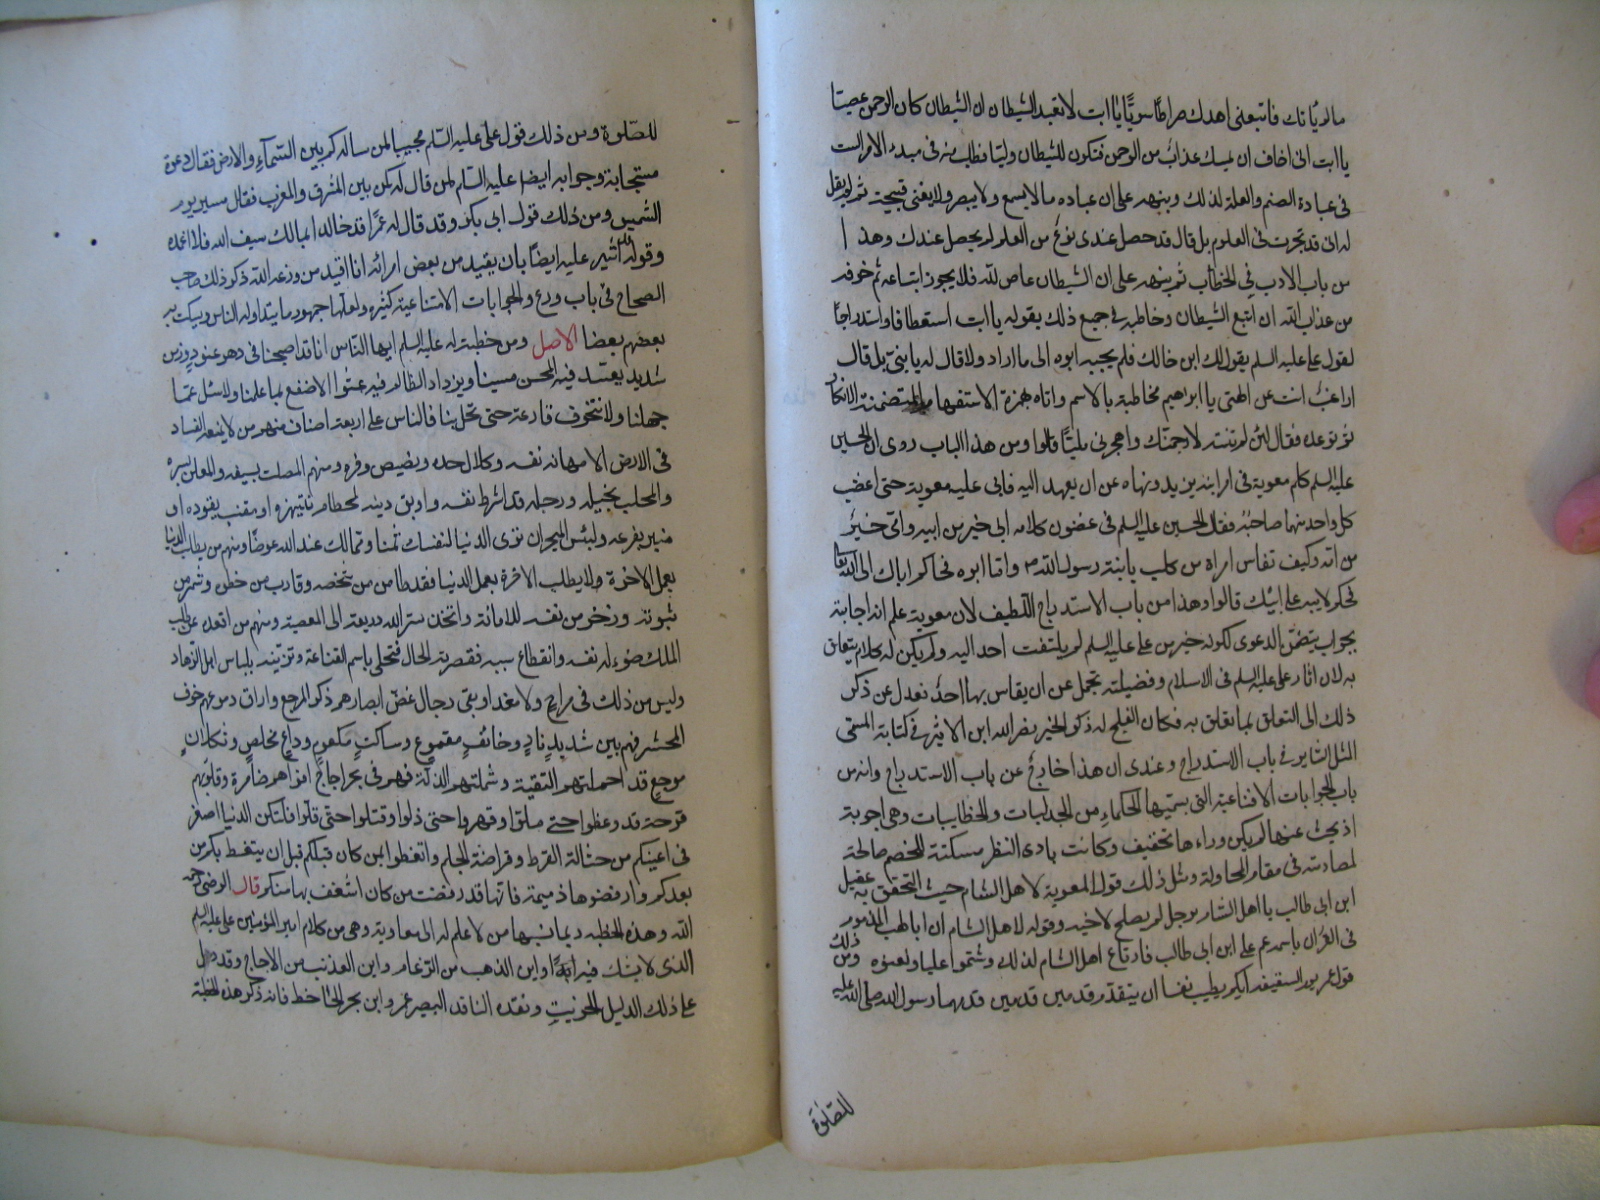 مالم يأتك فاتبعنى اهدك صراطا سويًّا يا ابت لا تعبد الشيطان ان الشيطان كان للرحمن عصيّا
يا ابت انى اخاف ان يمسك عذاب من الرحمن فتكون للشيطان وليّا فطلب منه فى مبدء الامر السبب
فى عبادة الصنم والعلة لذلك ونبهه على ان عباده ما لا يسمع ولا يبصر ولا يغنى قبيحة ثم لم يقل
له انى قد تبحرت فى العلوم بل قال قد حصل عندى نوع من العلم لم يحصل عندك وهذا
من باب الادب فى الخطاب ثم نبهه على ان الشيطان عاص لله فلا يجوز اتباعه ثم خوفه
من عذاب الله ان اتبع الشيطان وخاطبه فى جميع ذلك بقوله يا ابت استعطافا واستدراجًا
لقول على عليه السلم يقول لك ابن خالك فلم يجبه ابوه الى ما اراد ولا قال له يا بنىّ بل قال
اراغب انت عن الهتى يا ابراهيم فخاطبه بالاسم واتاه بهمزة الاستفهام المتضمنة للانكار
ثم توعده فقال لئن لم تنته لارجمنّك واهجرنى مليّا قالوا ومن هذا الباب روى ان الحسين
عليه السلم كلم معوية فى امر ابنه يزيد ونهاه عن ان يعهد اليه فابى عليه معوية حتى اغضب
كل واحد منهما صاحبه فقال الحسين عليه السلم فى غضون كلامه ابى خير من ابيه وامى خير
من امّه وكيف تقاس امراة من كلب بابنة رسول الله ص واما ابوه فحاكم اباك الى الله تعالى
فحكم لابيه على ابيك قالوا وهذا من باب الاستدراج اللطيف لان معوية علم انه اجابة
بجواب يتضمن الدعوى لكونه خير من على عليه السلم لم يلتفت احد اليه ولم يكن له كلام يتعلق
به لان اثار على عليه السلم فى الاسلام وفضيلته تجل عن ان يقاس بها احد فعدل عن ذكر
ذلك الى التعلق بما تعلق به فكان الفلج له ذكر الخبر نصر الله ابن الاثير فى كتابه المسمى
المثل السائر فى باب الاستدراج وعندى ان هذا خارج عن باب الاستدراج وانه من
باب الجوابات الاقناعية التى يسميها الحكماء من الجدليات والخطابيات وهى اجوبة
اذ بحث عنها لم يكن وراءها تحقيق وكانت بادى النظر مسكتة للخصم صالحة
لمصادمته فى مقام المجاولة ومثل ذلك قول المعوية لاهل الشام حيث التحقق به عقيل
ابن ابى طالب يا اهل الشام برجل لم يصلح لاخيه وقوله لاهل الشام ان ابا لهب المذموم
فى القرآن باسمه عم على ابن ابى طالب فارتاع اهل الشام لذلك وشتموا عليا ولعنوه ومن ذلك
قول عمر يوم السقيفه ايكم يطيب نفسا ان يتقدم قدمين قدمهما رسول الله صلى الله عليه
للصّلوة
للصّلوة ومن ذلك قول على عليه السلم مجيبا لمن ساله كم بين السّمآء والارض فقال دعوة
مستجابة وجوابه ايضا عليه السلم لمن قال له كم بين المشرق والمغرب فقال مسير يوم
الشمس ومن ذلك قول ابى بكر وقد قال له عمر اقد خالد ابمالك سيف الله فلا اغمده
وقوله اشير عليه ايضًا بان يقيد من بعض امرائه انا اقيد من وزعة الله ذكر ذلك صاحب
الصحاح فى باب وزع والجوابات الاقناعية كثيرة ولعلها جمهور ما يتداوله الناس ويسكت به
بعضهم بعضا الاصل ومن خطبة له عليه السلم ايها النّاس انا قد اصبحنا فى دهر عنود وزمن
شديد يعتد فيه المحسن مسيئا ويزداد الظالم فيه عتوّا لا ننتفع بما علمنا ولا نسئل عمّا
جهلنا ولا نتخوف قارعة حتى تحل بنا فالناس على اربعة اصناف منهم من لا يمنعه الفساد
فى الارض الا مهانة نفسه وكلال حده ونضيض وفره ومنهم المصلت بسيفه والمعلن بسره
والمجلب بخيله ورجله قد اشرط نفسه واوبق دينه لحطام ينتهزه او مقنب يقوده او
منبر يفرعه ولبئس المتجر ان ترى الدنيا لنفسك ثمنا وممالك عند الله عوضا ومنهم من يطلب الدنيا
بعمل الاخرة ولا يطلب الاخرة بعمل الدنيا فقد طامن من شخصه وقارب من خطوه وشمر من
ثوبه وزخرف من نفسه للامانة واتخذ ستر الله ذريعة الى المعصية ومنهم من اقعده عن طلب
الملك ضوءلة نفسه وانقطاع سببه فقصرته الحال فتحلى باسم القناعة وتزيّن بلباس اهل الزهاد
وليس من ذلك فى مراح ولا مغدا وبقى رجال غضّ ابصارهم ذكر المرجع واراق دموعهم خوف
المحشر فهم بين شديد نادٍ وخائفٍ مقموع وساكتٍ مكعوم وداعٍ مخلصٍ وثكلانٍ
موجع قد اخملتهم التقية وشملتهم الذلّة فهم فى بحر اجاج افواههم ضامرة وقلوبهم
قرحة قد وعظوا حتى ملّوا وقهروا حتى ذلوا وقتلوا حتى قلّوا فلتكن الدنيا اصغر
فى اعينكم من حثالة القرظ وقراضة الجلم واتعظوا بمن كان قبلكم قبل ان يتعظ بكم من
بعدكم وارفضوها ذميمة فانها قد رفضت من كان اشغف بها منكم قال الرضى رحمه
الله وهذه الخطبة ربما نسبها من لا علم له الى معاوية وهى من كلام امير المؤمنين على عليه السلم
الذى لا يشك فيه اين الذهب من الرّغام واين العذب من الاجاج وقد دل
على ذلك الدليل الخريت ونقده الناقد البصير عمرو ابن بحر الجاحظ فانه ذكر هذه الخطبة